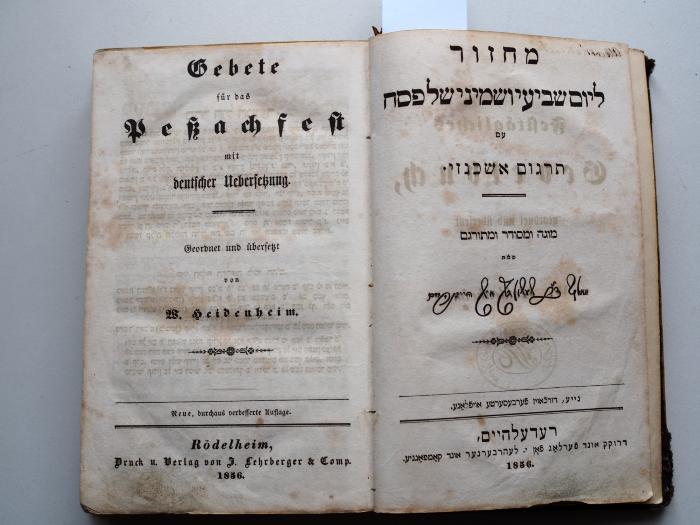 Gebete
für das
Peßachfest
mit
deutscher Uebersetzung.
Geordnet und übersetzt
von
W. Heidenheim.
Neue, durchaus verbesserte Auflage.
Rödelheim,
Druck u. Verlag von J. Lehrberger & Comp.
1856.
מחזור
ליום שביעי ושמיני של פסח
עם
תרגום אשכנזי.
מוגה ומסודר ומתורגם
מאת
נייע, דורכאויס פערבעסערטע אויפלאגע.
רעדעלהיים,
דרוקק אונד פערלאג פאן י. לעהרבערגער אונד קאמפאגניע.
1856.